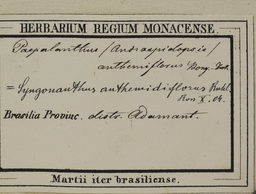 HERBARIUM REGIUM MONACENSE.
Paepalanthus / Andraspidopsis /
anthemiflorus Bong.
= Syngonanthus anthemidiflorus Ruhl.
X. 04.
Brasilia Provinc. distr. Adamant.
Martii iter brasiliense.